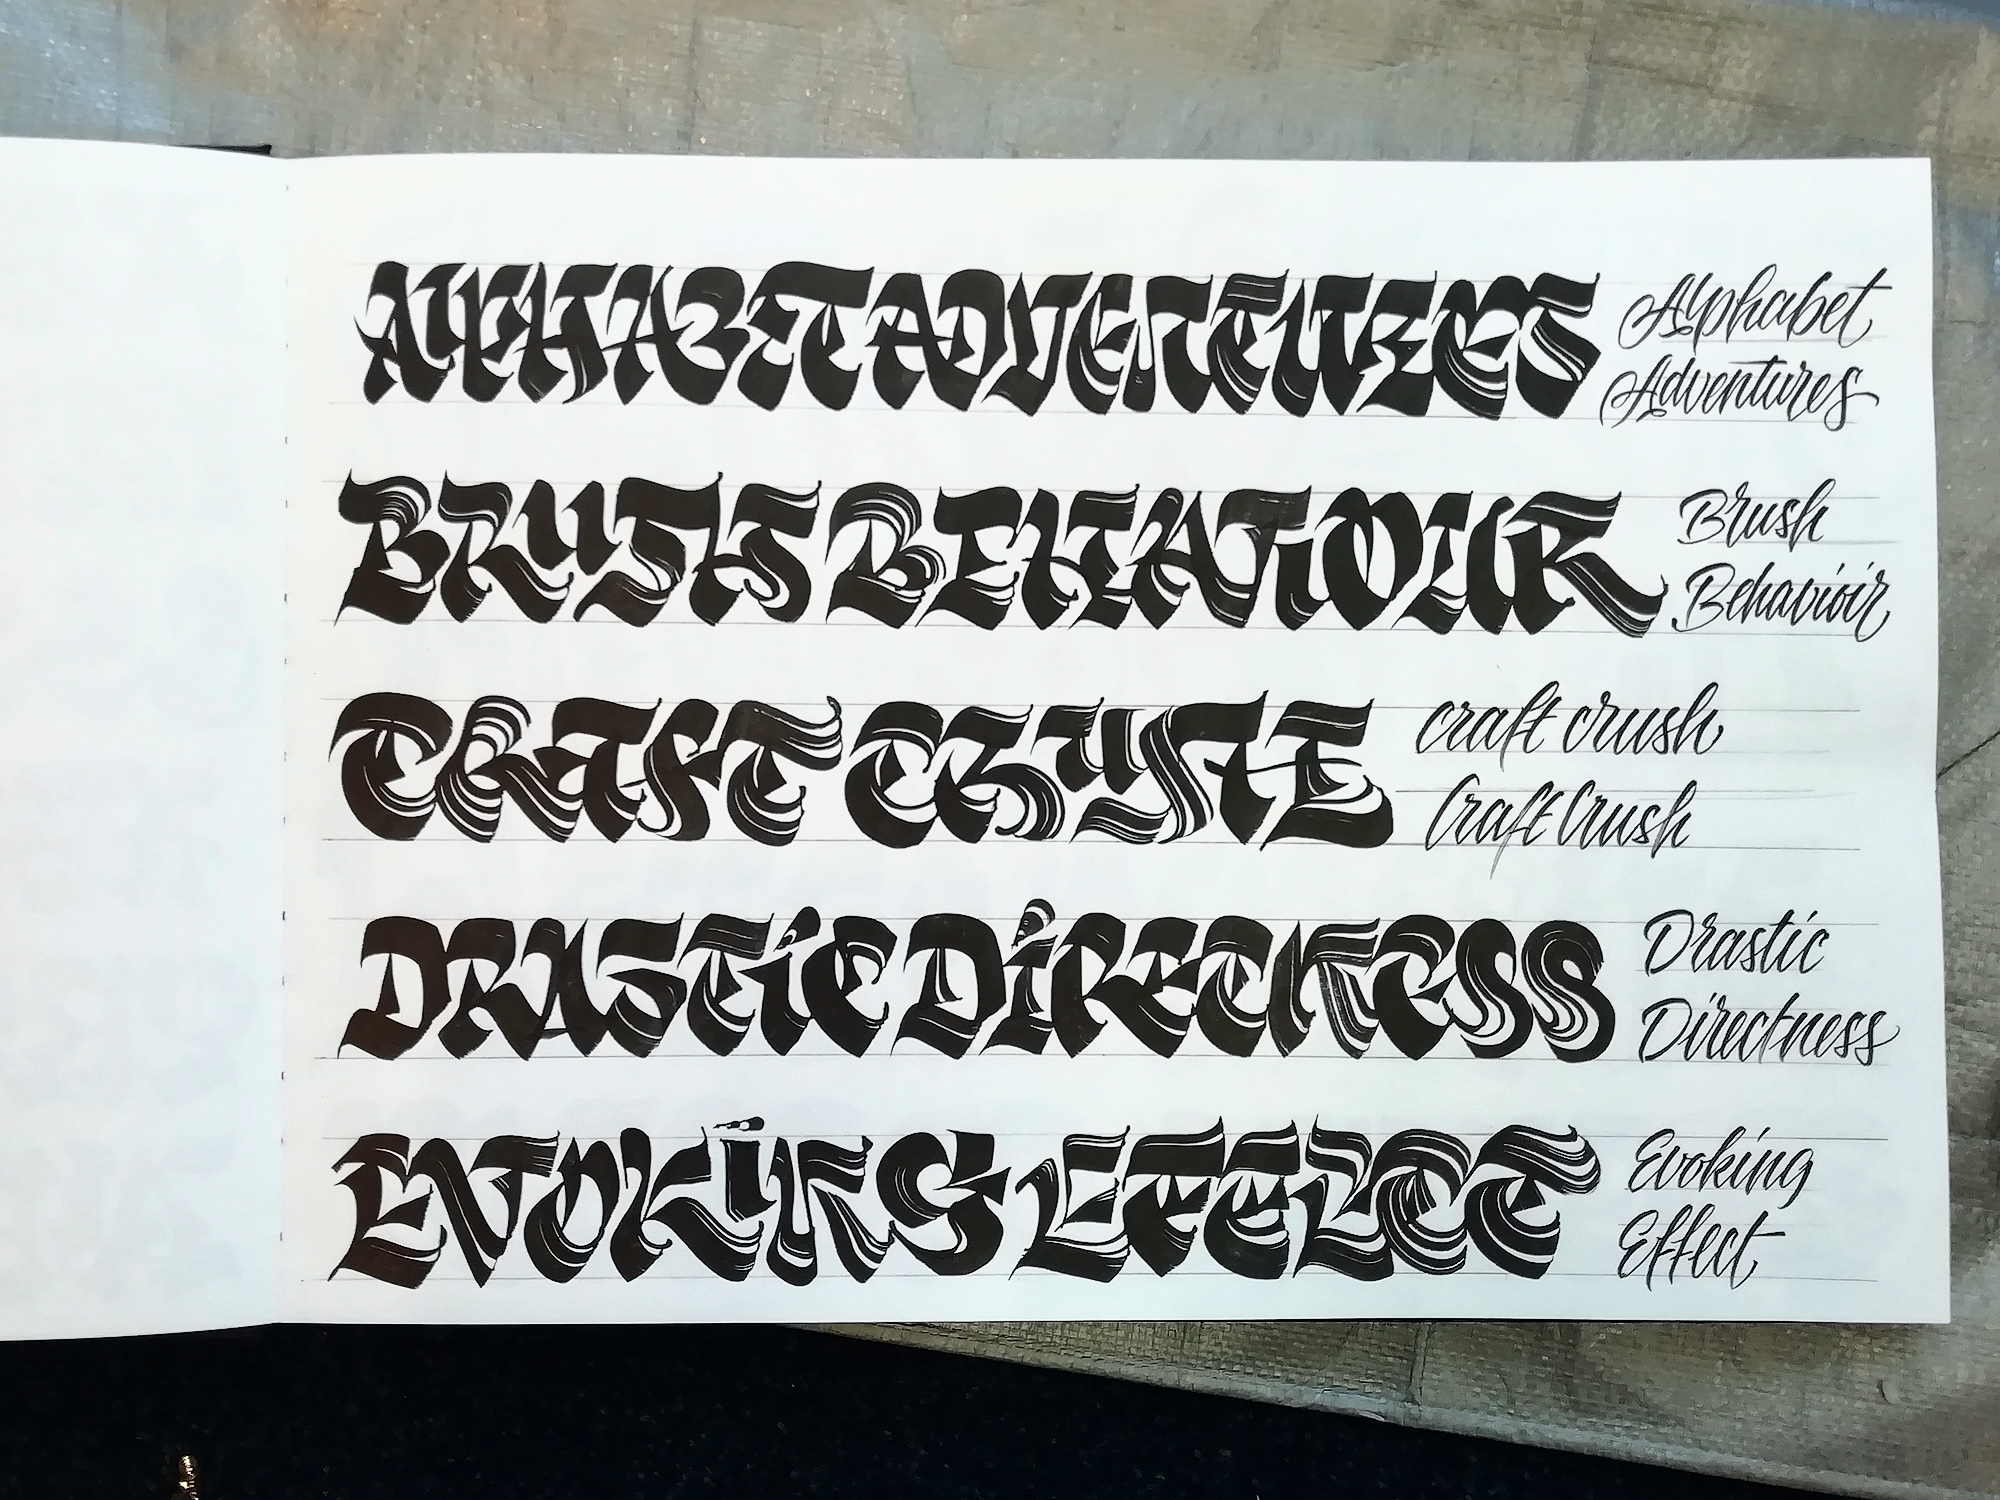 ALPHABET ADVENTURES
Alphabet
Adventures
BRUSH BEHAVIOUR
Brush
Behaviour
CRAFT CRUSH
craft crush
Craft Crush
DRASTiC DiRECTNESS
Drastic
Directness
EVOKiNG EFFECT
Evoking
Effect